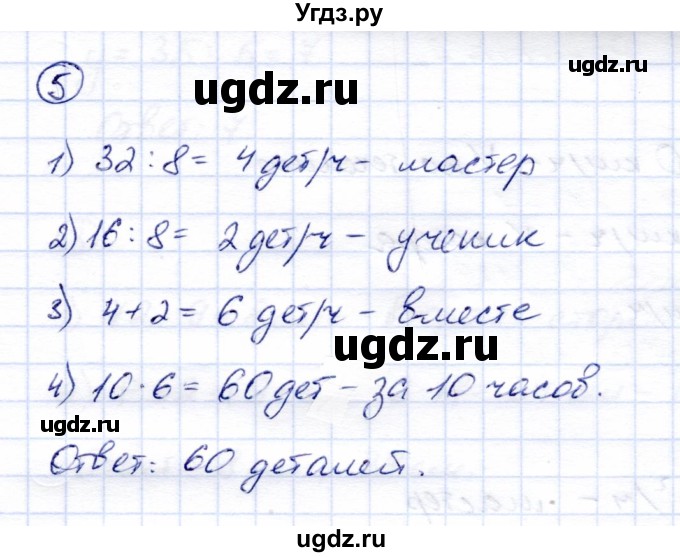 Угдз.ру
5
ugdz.ru
1) 32 : 8 = 4 дет/ч – мастер
2) 16 : 8 = 2 дет/ч – ученик
3) 4 + 2 = 6 дет/ч – вместе
ugdz.ru
4) 10 · 6 = 60 дет – за 10 часов.
ugdz.ru
Ответ: 60 деталей.
ugdz.ru